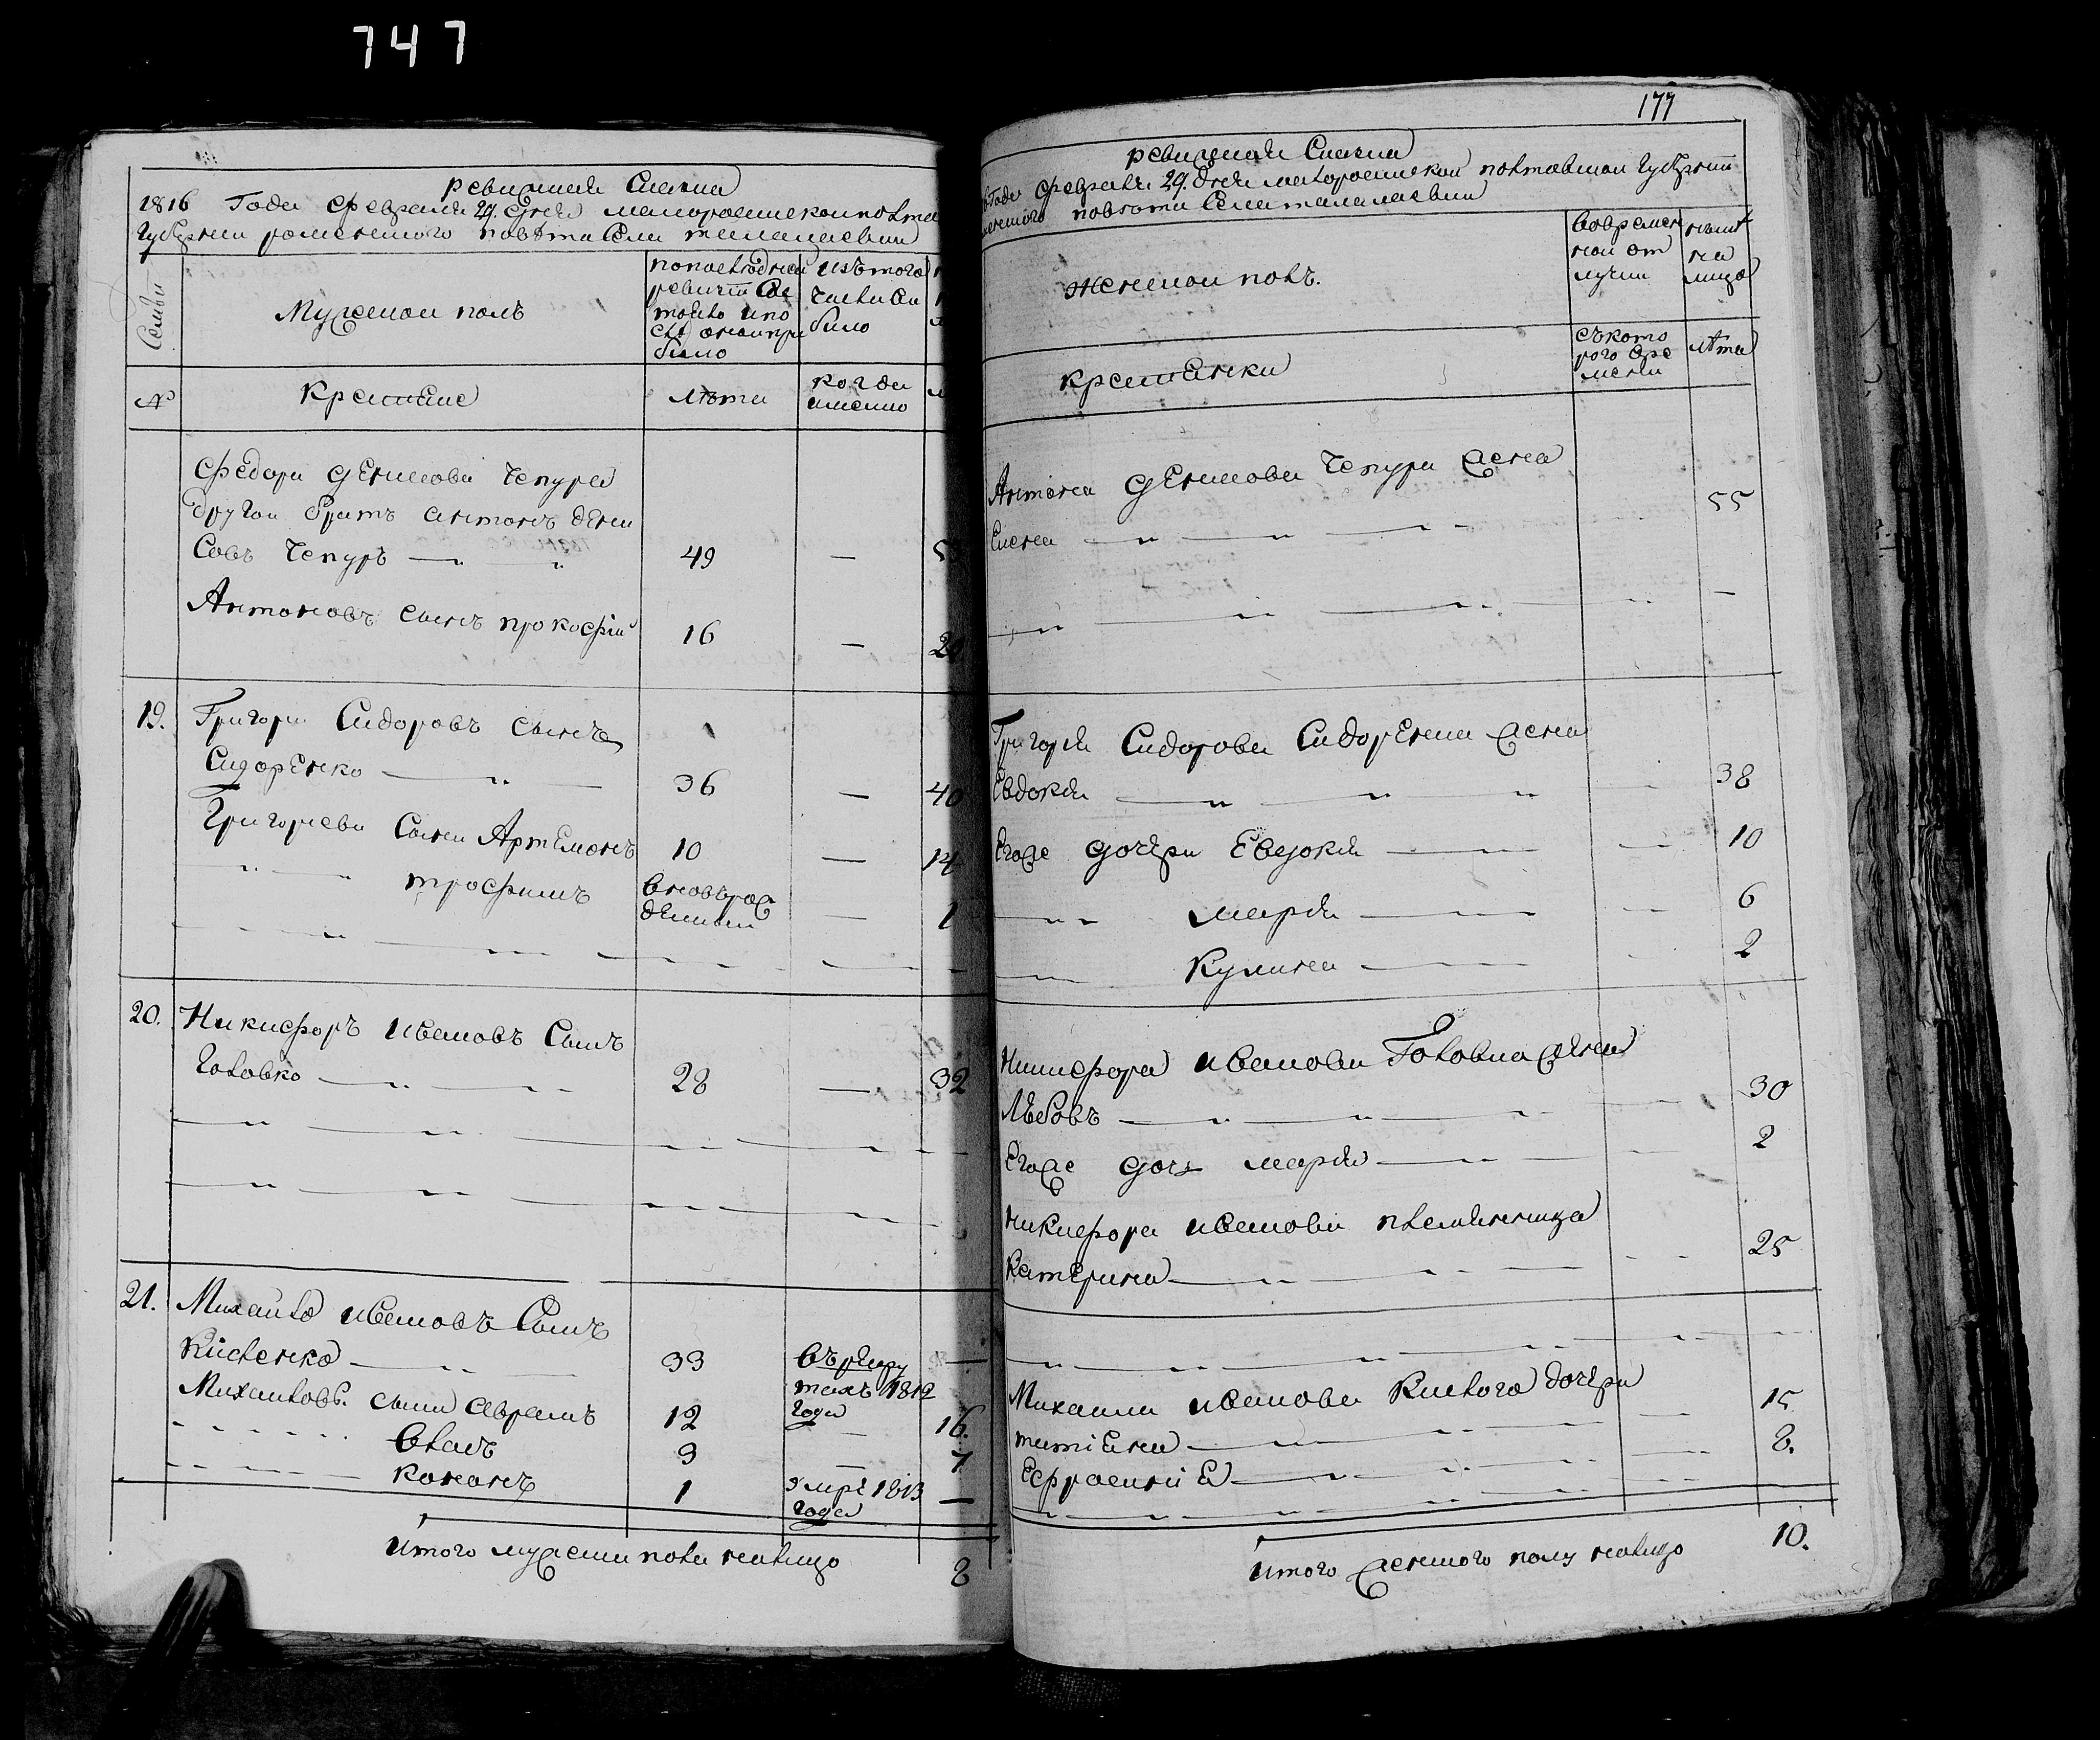 747
ревизская Сказка
1816 Года февраля 29. дня малороссискои полта
Губернии роменского повѣта Села талалаевки
Семьи
Мужескои полъ
попоследнеи
ревизіи Со
тояло ипо
слѣ онои при
было
изътого
числа вы
было
№
Крестяне
лѣта
когда
имено
Федора Денисова Чепура
другои братъ антонъ дени
совъ Чепуръ
49
—
Антоновъ сынъ прокофіи
16
—
20
19. Григори Сидоровъ сынъ
Сидоренко
36
—
40
Григориеви Сыни Артемонъ
10
—
14
трофимъ
вновьрож
денныи
—
1
20. Никифоръ ивановъ Сынъ
головко
28
—
32
21. Михаило ивановъ Сынъ
Киселенко
33
въ рекру
тахъ 1812
года
—
Михаиловы сыни аврамъ
12
—
16.
власъ
3
—
7
кононъ
1
умре 1813
года
—
итого мужеска пола налицо
8
177
ревизская Сказка
Года февраля 29. дня малороссискои полтавскои Губерніи
повѣта Села талалаевки
женскои полъ.
вовремен
нои от
лучки
ныне
на
лицо
крестянки
съкото
рого вре
мени
лѣта
Антона Денисова Чепури жена
Елена
55
—
Григорія Сидорова Сидоренка жена
Евдокія
38
Егоже дочери Евдокія
10
марія
6
Кулина
2
Никифора иванова Головка жена
Любовъ
30
Егоже дочь марія
2
никифора иванова племяница
Катерина
25
Михаила иванова Кислого дочери
татіяна
15
Ефросинія
8.
итого женского полу налицо
10.